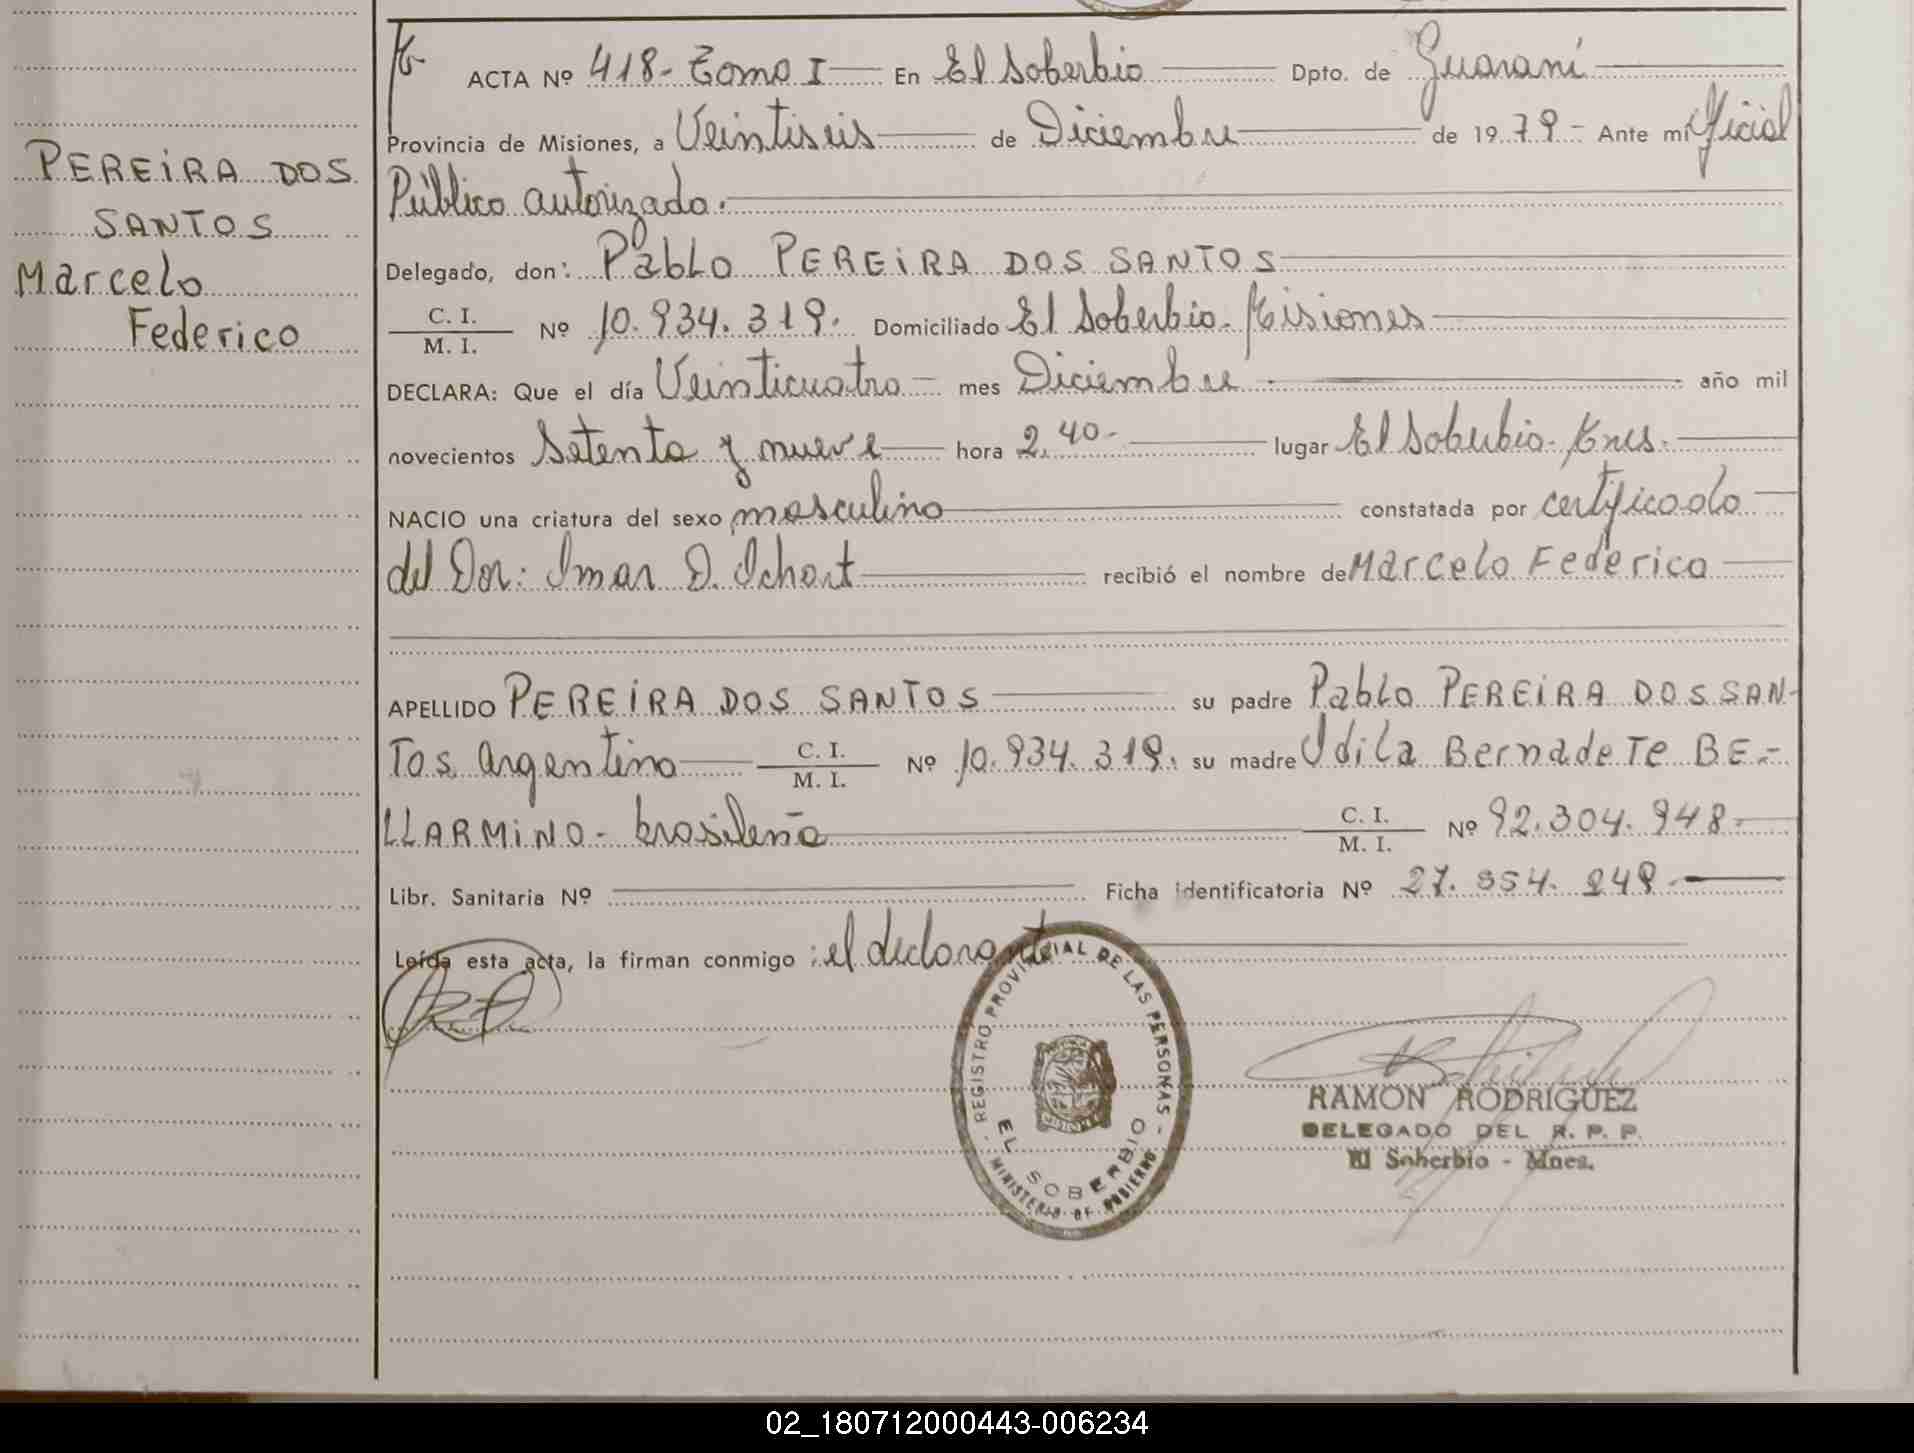 PEREIRA DOS
SANTOS
Marcelo
Federico
ACTA Nº 418- Tomo I En El Soberbio Dpto. de Guaraní
Provincia de Misiones, a Veintiseis de Diciembre de 1979- Ante mi Oficial
Público autorizado.
Delegado, don: Pablo PEREIRA DOS SANTOS
C. I.
M. I. Nº 10.934.319. Domiciliado El Soberbio. Misiones
DECLARA: Que el día Veinticuatro mes Diciembre año mil
novecientos Setenta y nueve hora 2,40- lugar El Soberbio- Mnes.
NACIO una criatura del sexo masculino constatada por certificado
del Dor: Imar D. recibió el nombre de Marcelo Federico
APELLIDO PEREIRA DOS SANTOS su padre Pablo PEREIRA DOS SAN-
TOS Argentino C. I.
M. I. Nº 10.934.319. su madre Idila Bernadete BE-
LLARMINO- brasileña C. I.
M. I. Nº 92.304.948-
Libr. Sanitaria Nº Ficha identificatoria Nº 27.554.249-
Leída esta acta, la firman conmigo: el declarante
REGISTRO PROVINCIAL DE LAS PERSONAS
EL SOBERBIO
MINISTERIO DE GOBIERNO
RAMON RODRIGUEZ
DELEGADO DEL R. P. P.
El Soberbio - Mnes.
02_180712000443-006234